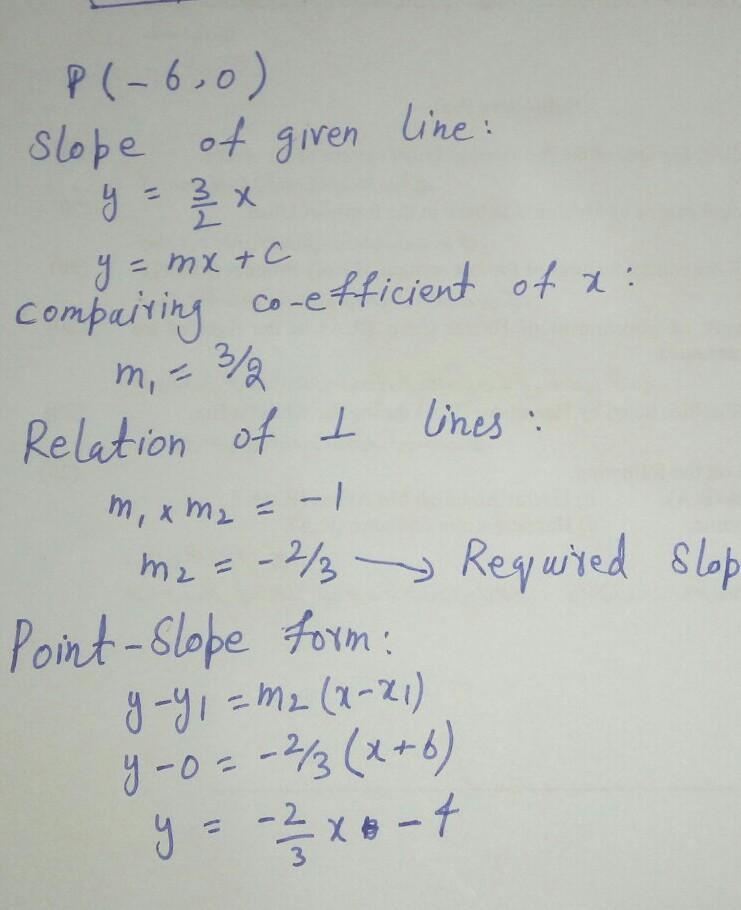 P(-6,0)
Slope of given line:
y = 3/2 x
y = mx + C
Compairing co-efficient of x:
m₁ = 3/2
Relation of ⊥ lines:
m₁ x m₂ = -1
m₂ = -2/3 → Required Slop
Point-Slope form:
y-y₁ = m₂ (x-x₁)
y-0 = -2/3 (x+6)
y = -2/3 x - 4